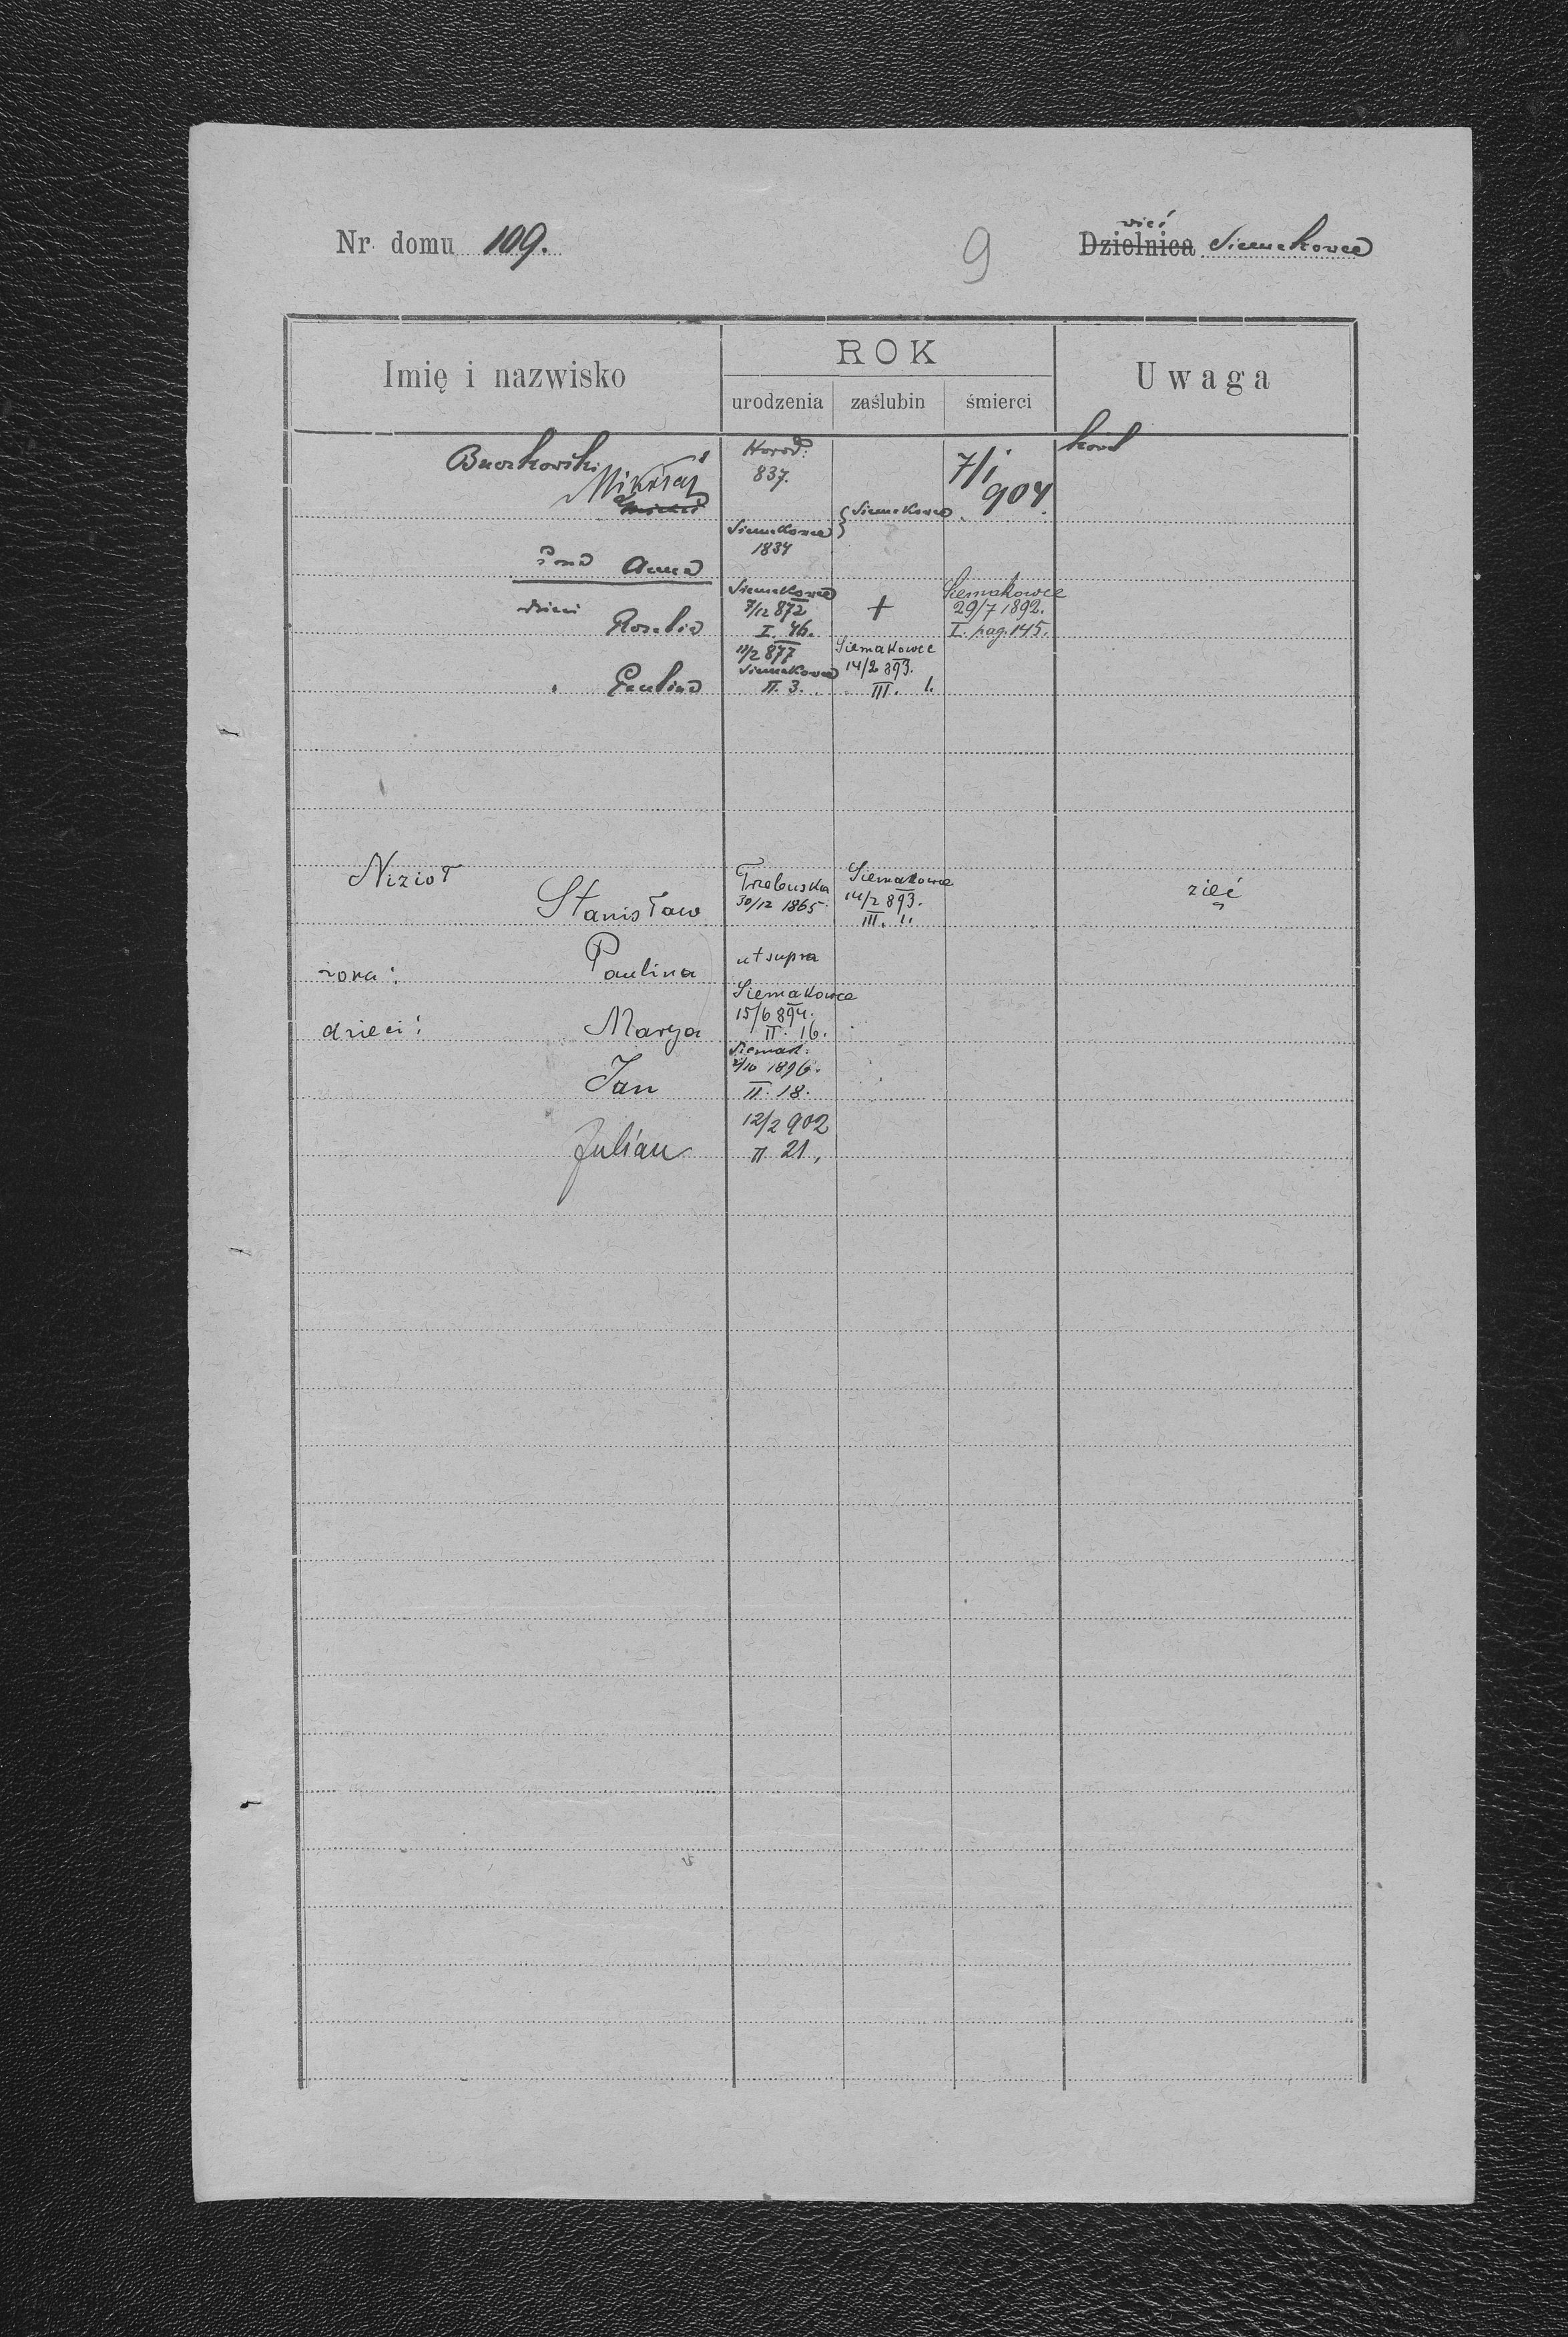 Nr. domu 109.
9
wieś
Dzielnica Siemakowce
Imię i nazwisko
ROK
urodzenia
zaślubin
śmierci
Uwaga
Horod:
837.
7/I
904.
Mikołaj
Siemakowce
Siemakowce
1834
żona Anna
dzieci Rozalia
Siemakowce
7/12 872
I. 46.
+
Siemakowce
29/7 1892.
I. pag. 145.
Paulina
11/2 877
Siemakowce
II. 3.
Siemakowce
14/2 893.
III. 1.
Nizioł
Stanisław
Trzebuska
30/12 1865.
Siemakowce
14/2 893.
III. 1.
zięć
żona: Paulina
ut supra
dzieci: Marya
Siemakowce
15/6 894.
II. 16.
Jan
Siemak:
1896.
II. 18.
Julian
12/2 902
II 21,